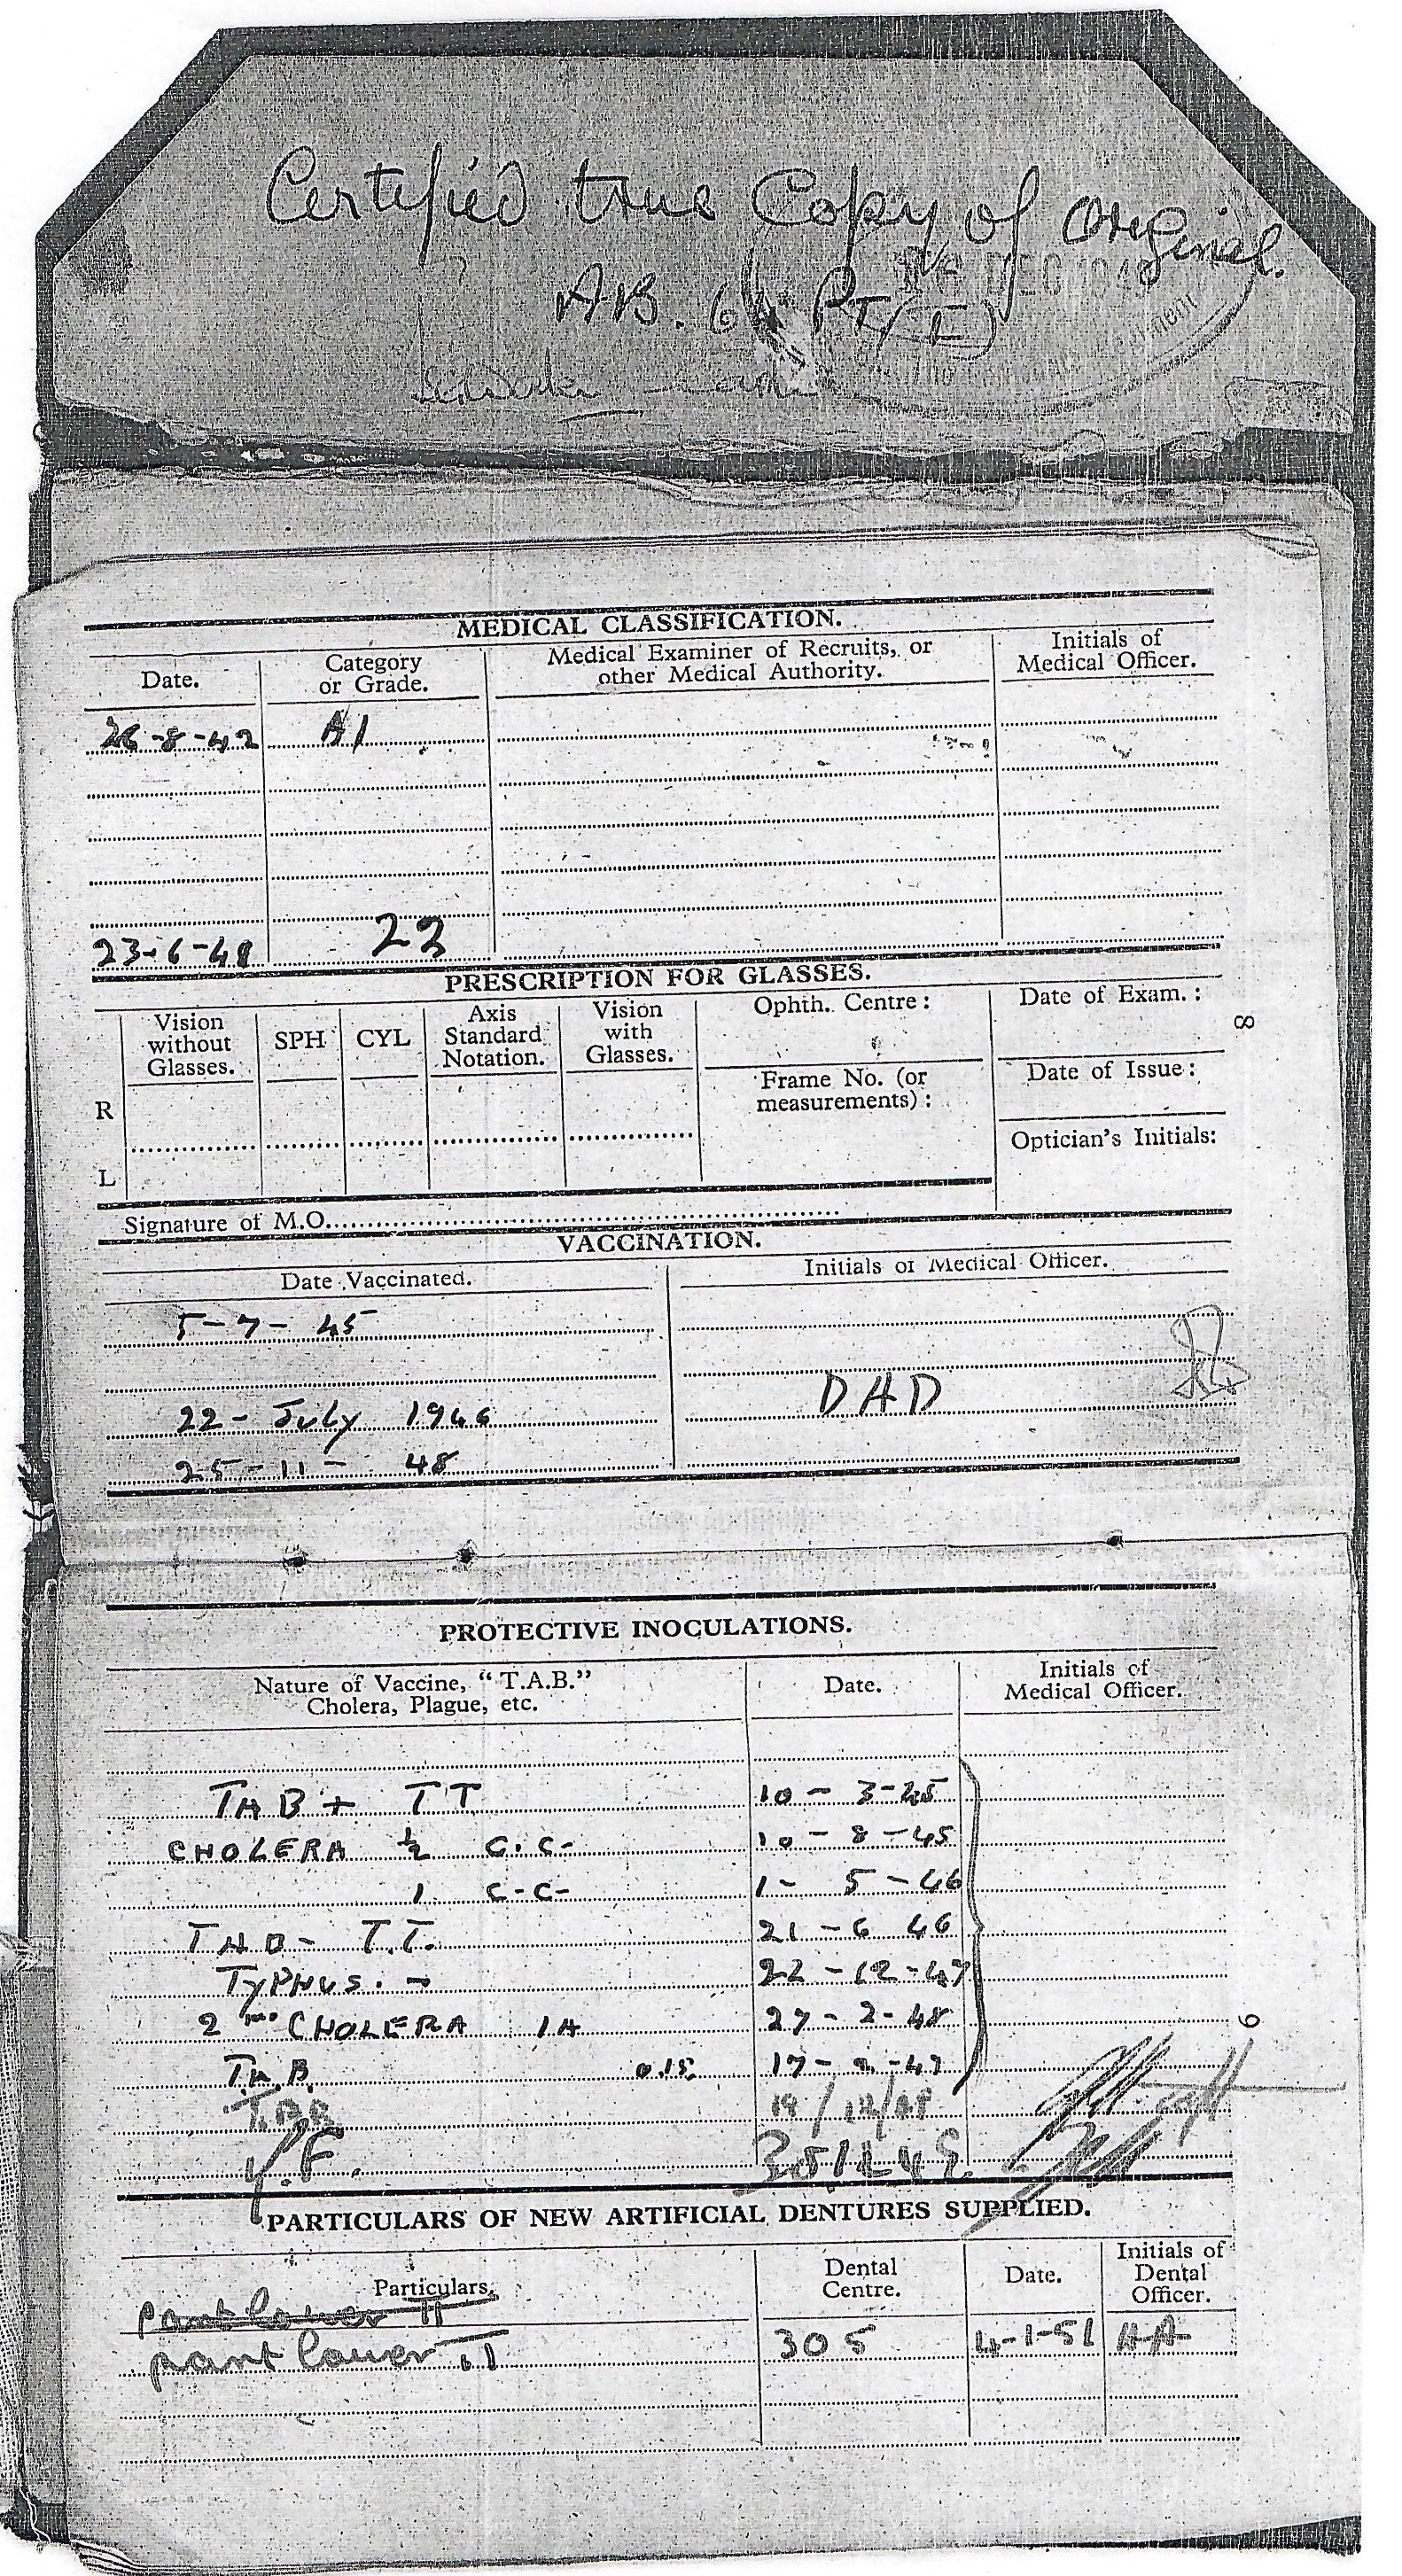 Certified true Copy of Original.
AB. 64 PT (I)
DEC 194
MEDICAL CLASSIFICATION.
Date. Category or Grade. Medical Examiner of Recruits, or other Medical Authority. Initials of Medical Officer.
26-8-42 A1
23-6-48 22
PRESCRIPTION FOR GLASSES.
Vision without Glasses. SPH CYL Axis Standard Notation. Vision with Glasses. Ophth. Centre: Date of Exam.:
8
Frame No. (or measurements): Date of Issue:
R
Optician's Initials:
L
Signature of M.O.
VACCINATION.
Date Vaccinated. Initials of Medical Officer.
5-7-45
22-July 1946 DAD
25-11- 48
PROTECTIVE INOCULATIONS.
Nature of Vaccine, "T.A.B." Cholera, Plague, etc. Date. Initials of Medical Officer.
TAB + TT 10-3-45
CHOLERA ½ C.C- 10-8-45
1 C-C- 1- 5-46
TAB- T.T. 21-6 46
TYPHUS. - 22-12-47
2nd CHOLERA 1A 27-2-48
9
T.A.B. 0.15 17-2-47
TAB 19/12/48
Y.F.
PARTICULARS OF NEW ARTIFICIAL DENTURES SUPPLIED.
Particulars. Dental Centre. Date. Initials of Dental Officer.
part lower
part lower 305 4-1-51 HA